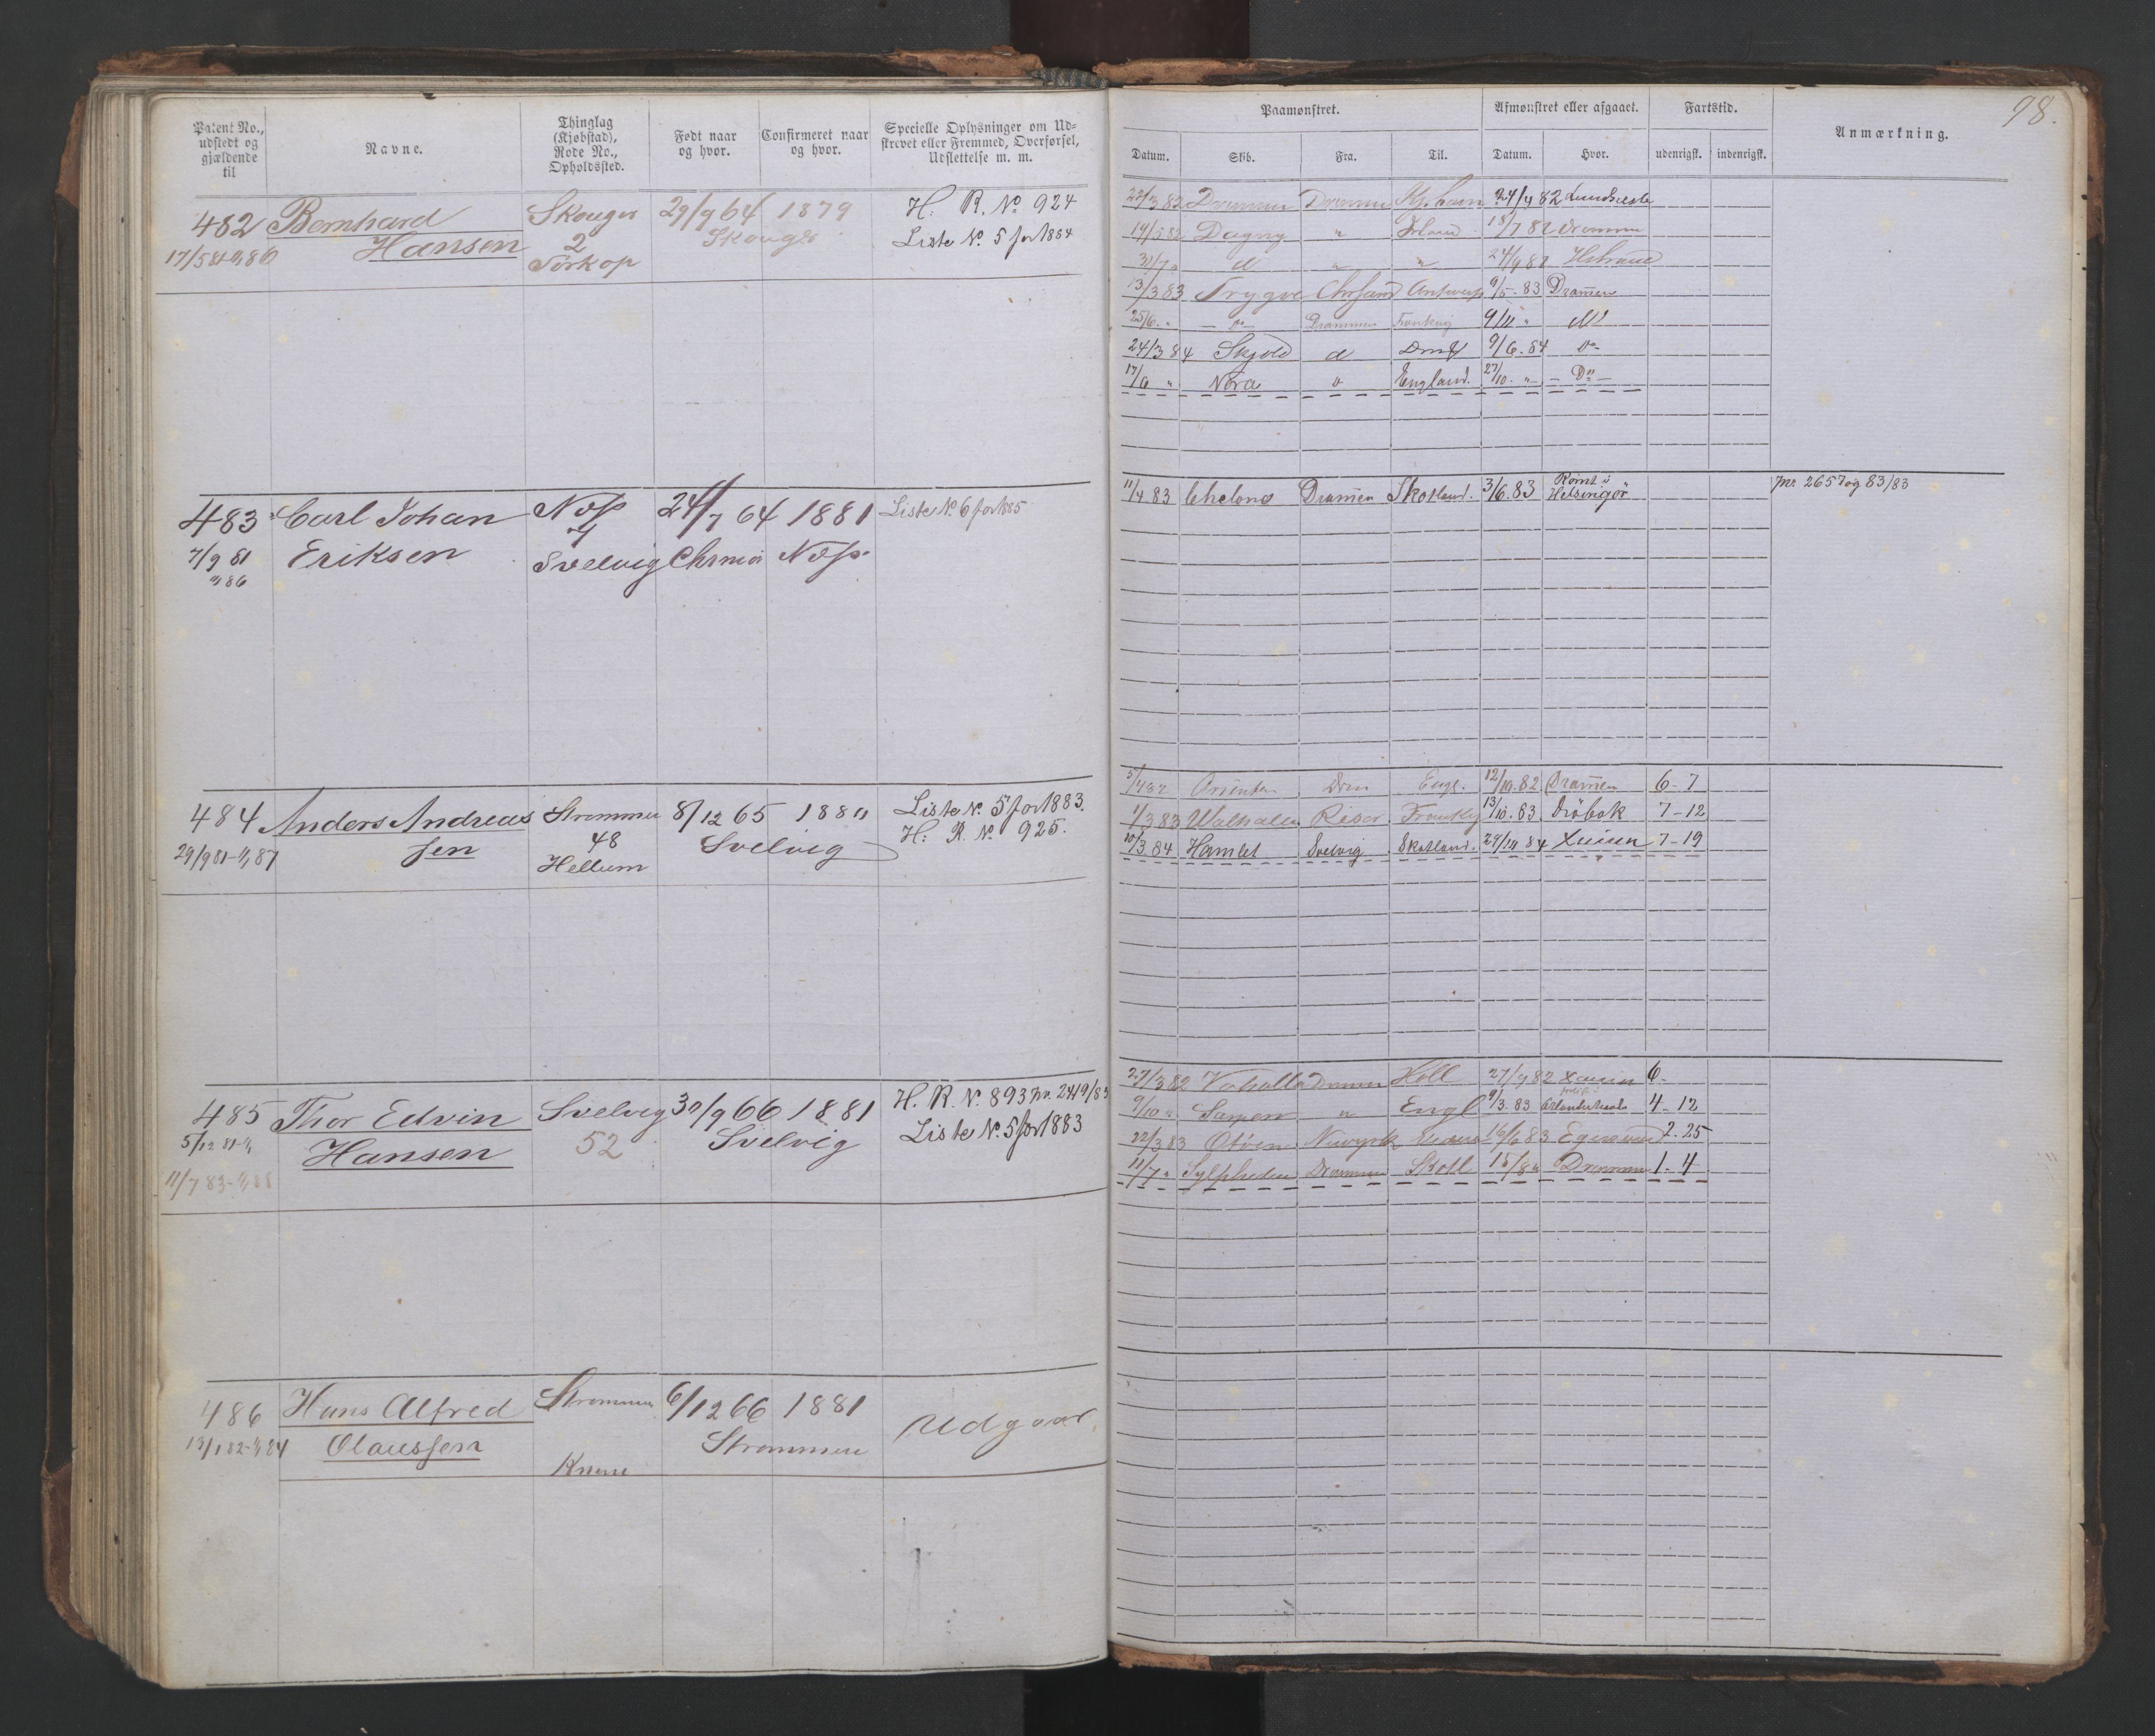 98.
Patent No., udstedt og gjældende til
Navne.
Thinglag (Kjøbstad), Rode No., Opholdssted.
Født naar og hvor.
Confirmeret naar og hvor.
Specielle Oplysninger om Udskrevet eller Fremmed, Overførsel, Udslettelse m. m.
Paamønstret.
Afmønstret eller afgaaet.
Fartstid.
Anmærkning.
Datum. Skb. Fra. Til. Datum. Hvor. udenrigsk. indenrigsk.
482 Bernhard Skouger 29/9 64 1879 H. R. No. 924
Hansen 2 Skouger Liste No. 5 for 1884
17/5 81 86 Tørkop
23/3 82 Drammen Drammen 24/4 82
14/5 82 Dagny " Irland 18/7 82 Drammen
31/7 " d " " 24/9 82
13/3 83 Trygve Chrsand Antwerp 9/5 - 83 Dramen
25/6 " - do - Drammen Frankrig 9/11 "
24/3 84 Skjold d 9/6 - 84 do
17/6 " Nora o England. 27/10 - " - Do -
483 Carl Johan Næss 24/7 64 1881 Liste No. 6 for 1885
7/9 81 Eriksen Svelvig Chrnia Næss.
86
11/4 83 Chelona Dramen Skotland. 3/6. 83 Rømt i Helsingør jnr. 2657 og 83/83
484 Anders Andreas Strømmen 8/12 65 1880 Liste No. 5 for 1883.
sen 48 Svelvig H. R. No. 925.
29/9 81 - 87 Hellum
5/4 82 Orienten Drm Engl. 12/10. 82 Dramen 6 - 7
1/3 83 Walhalla Risør Frankrig 13/10. 83 Drøbak 7 - 12
20/3 84 Hamlet Svelvig Skotland. 29/10 84 Xania 7 - 19
485 Thor Edvin Svelvig 30/9 66 1881 H. R. No. 893 jnr. 2419/83
5/12 81 Hansen 52 Svelvig Liste No. 5 for 1883
11/7 83 - 88
27/3 82 Valhalla Drammen Holl 27/9 82 Xania 6 -
9/10 " Sarpen " Engl 9/3. 83 4 - 12
22/3 83 Newyork 16/6 83 Egersund 2. 25
11/7 " Sylphiden Drammen Skotl 15/8 " Drammen 1. 4
486 Hans Alfred Strømmen 6/12 66 1881 Udgaar.
13/1 82 - 84 Olaussen Strømmen